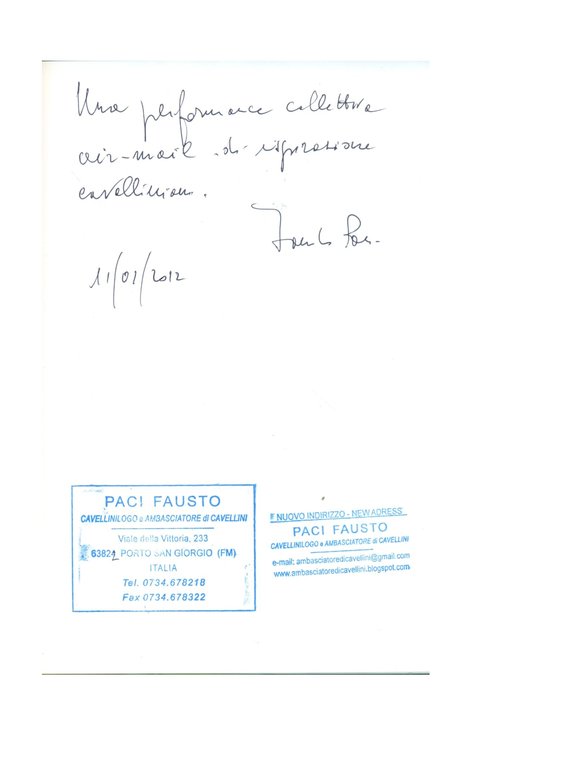 Una performance collettiva
air-mail di ispirazione
cavelliniana.
Fausto Paci
11/01/2012
PACI FAUSTO
CAVELLINILOGO e AMBASCIATORE di CAVELLINI
Viale della Vittoria, 233
63821 PORTO SAN GIORGIO (FM)
ITALIA
Tel. 0734.678218
Fax 0734.678322
NUOVO INDIRIZZO - NEW ADRESS
PACI FAUSTO
CAVELLINILOGO e AMBASCIATORE di CAVELLINI
e-mail: ambasciatoredicavellini@gmail.com
www.ambasciatoredicavellini.blogspot.com